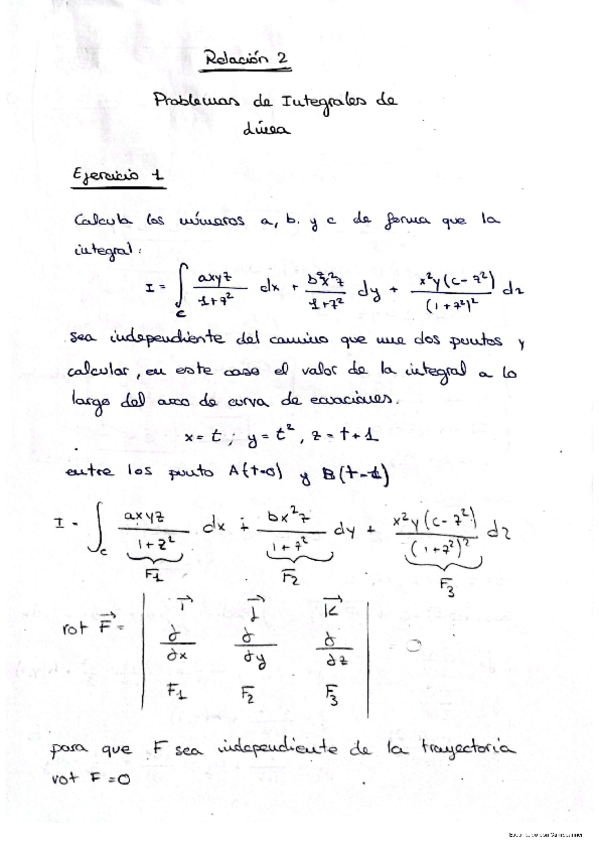 Relación 2
Problemas de Integrales de
Línea
Ejercicio 1
Calcula los números a, b. y c de forma que la
integral:
I = ∫c axyz/(1+z²) dx + b²x²z/(1+z²) dy + x²y(c-z²)/(1+z²)² dz
sea independiente del camino que une dos puntos y
calcular, en este caso el valor de la integral a lo
largo del arco de curva de ecuaciones.
x = t ; y = t² , z = t + 1
entre los punto A(t=0) y B(t=1)
I = ∫c axyz/(1+z²) dx + bx²z/(1+z²) dy + x²y(c-z²)/(1+z²)² dz
F1 F2 F3
i j k
rot F = ∂/∂x ∂/∂y ∂/∂z = 0
F1 F2 F3
para que F sea independiente de la trayectoria
rot F = 0